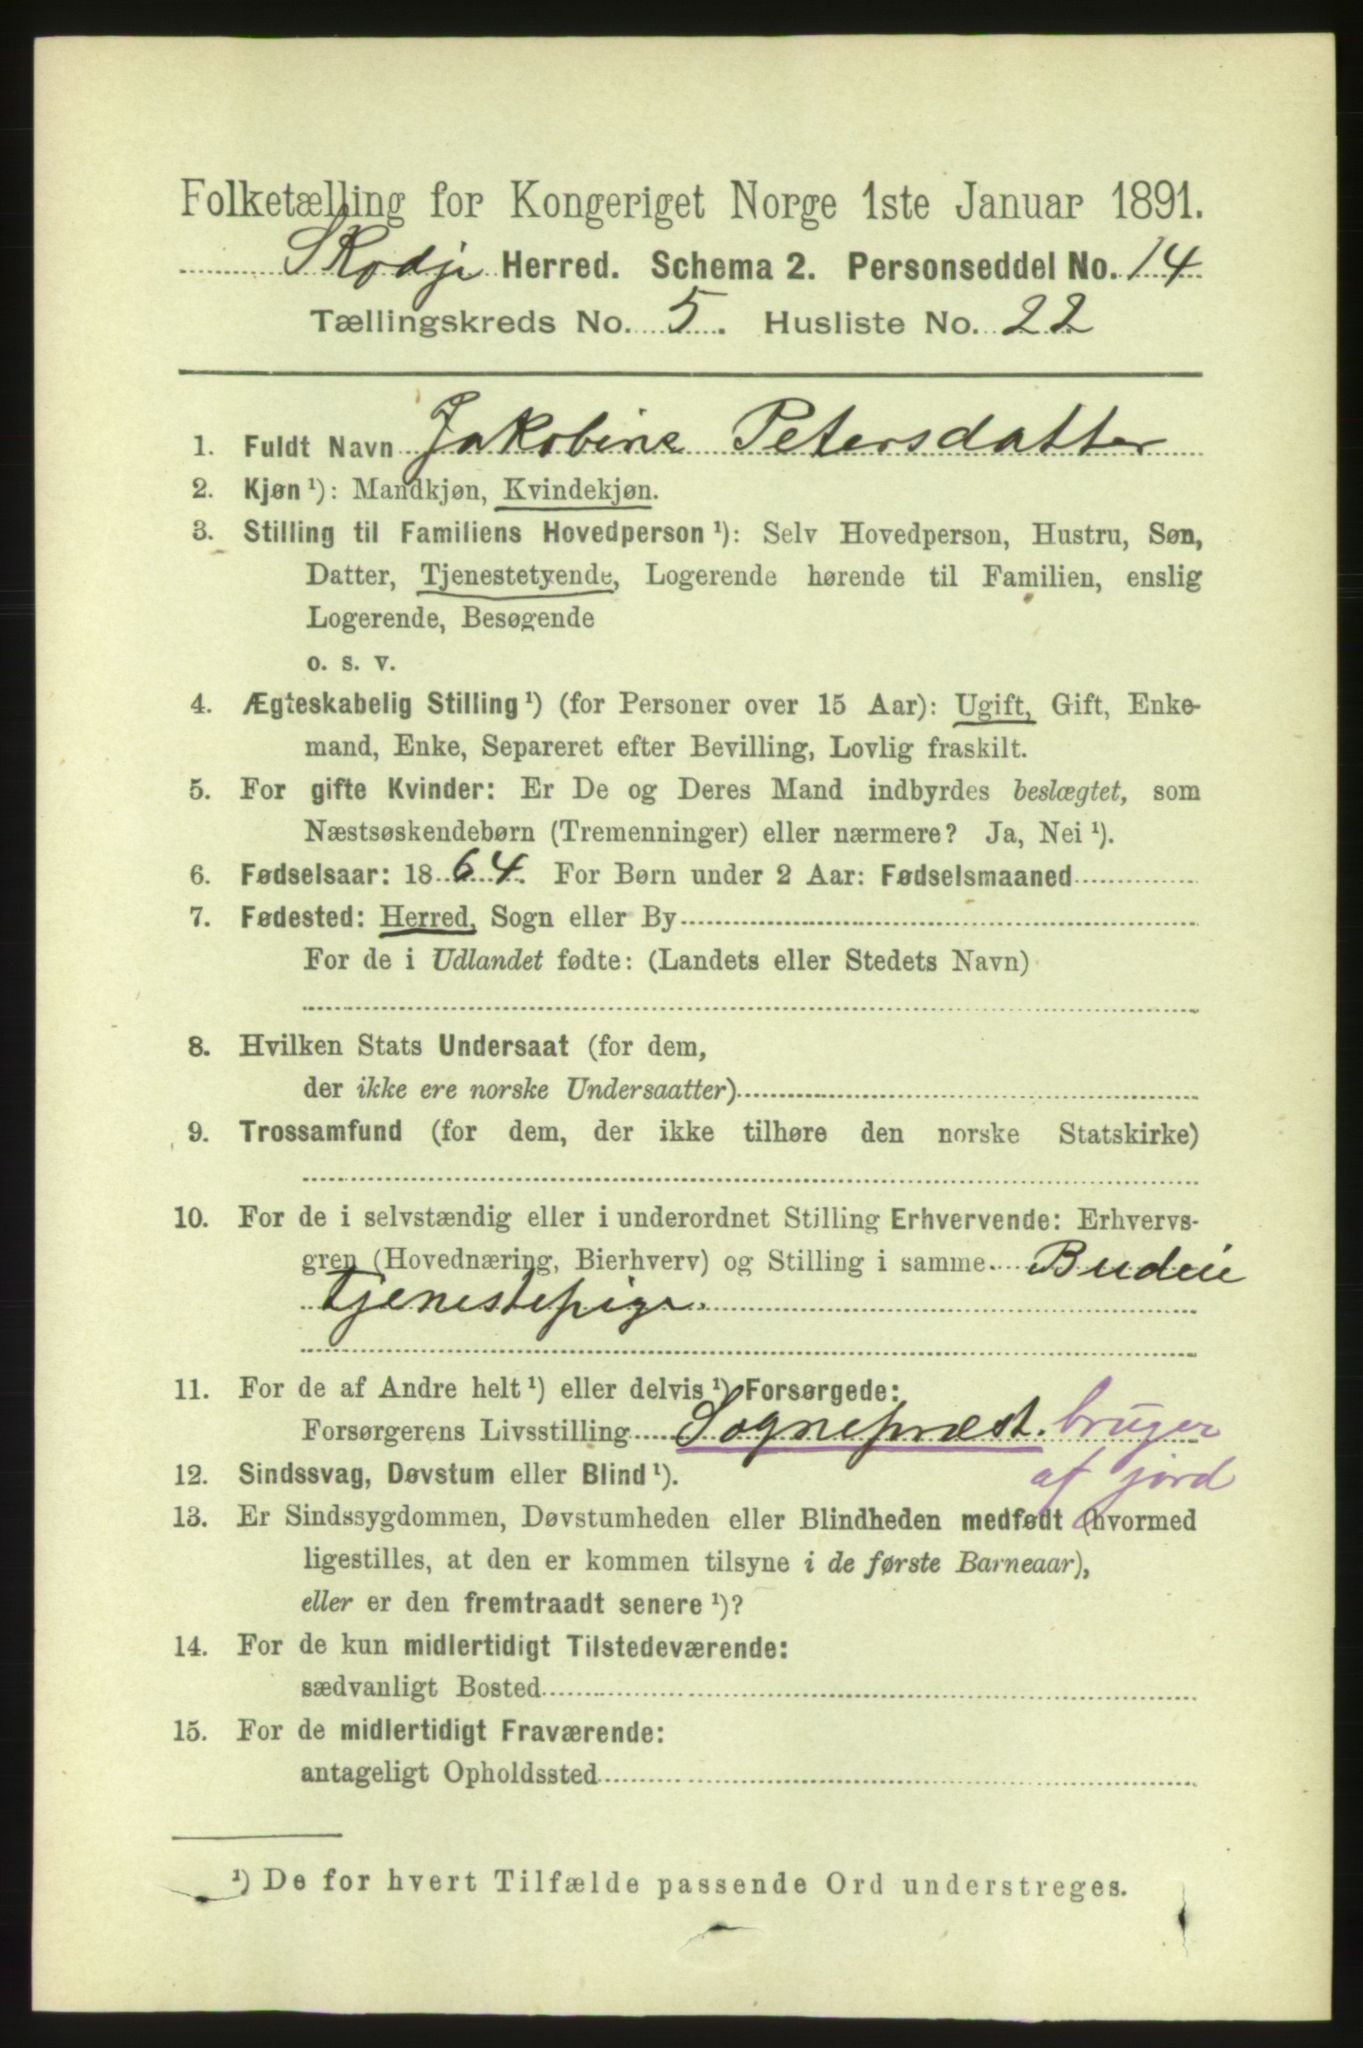 Folketælling for Kongeriget Norge 1ste Januar 1891.
Skodje Herred. Schema 2. Personseddel No. 14
Tællingskreds No. 5. Husliste No. 22
1. Fuldt Navn Jakobine Petersdatter
2. Kjøn ¹): Mandkjøn, Kvindekjøn.
3. Stilling til Familiens Hovedperson ¹): Selv Hovedperson, Hustru, Søn,
Datter, Tjenestetyende, Logerende hørende til Familien, enslig
Logerende, Besøgende
o. s. v.
4. Ægteskabelig Stilling ¹) (for Personer over 15 Aar): Ugift, Gift, Enke-
mand, Enke, Separeret efter Bevilling, Lovlig fraskilt.
5. For gifte Kvinder: Er De og Deres Mand indbyrdes beslægtet, som
Næstsøskendebørn (Tremenninger) eller nærmere? Ja, Nei ¹).
6. Fødselsaar: 1864. For Børn under 2 Aar: Fødselsmaaned
7. Fødested: Herred, Sogn eller By
For de i Udlandet fødte: (Landets eller Stedets Navn)
8. Hvilken Stats Undersaat (for dem,
der ikke ere norske Undersaatter)
9. Trossamfund (for dem, der ikke tilhøre den norske Statskirke)
10. For de i selvstændig eller i underordnet Stilling Erhvervende: Erhvervs-
gren (Hovednæring, Bierhverv) og Stilling i samme. Budeie
tjenestepige.
11. For de af Andre helt ¹) eller delvis ¹) Forsørgede:
Forsørgerens Livsstilling Sogneprest. bruger
af jord
12. Sindssvag, Døvstum eller Blind ¹).
13. Er Sindssygdommen, Døvstumheden eller Blindheden medfødt (hvormed
ligestilles, at den er kommen tilsyne i de første Barneaar),
eller er den fremtraadt senere ¹)?
14. For de kun midlertidigt Tilstedeværende:
sædvanligt Bosted
15. For de midlertidigt Fraværende:
antageligt Opholdssted
¹) De for hvert Tilfælde passende Ord understreges.